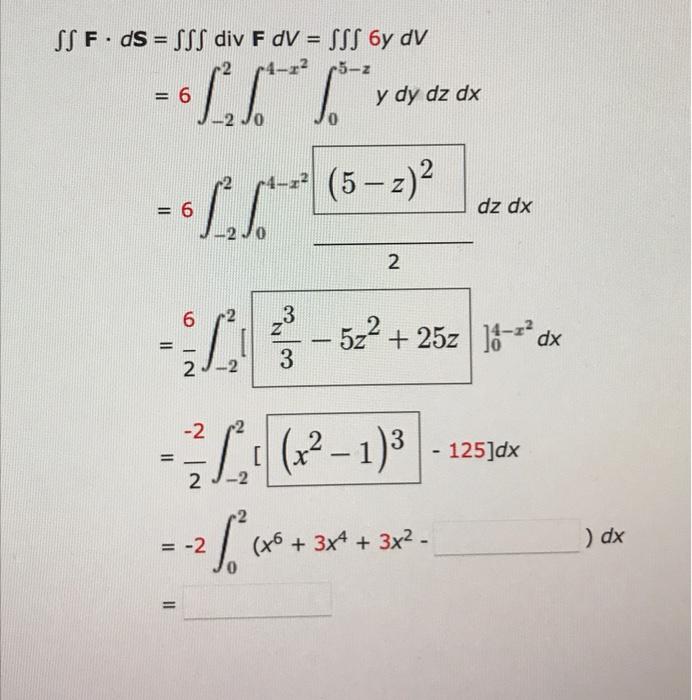 ∫∫ F · dS = ∫∫∫ div F dV = ∫∫∫ 6y dV
= 6 ∫_{-2}^{2} ∫_{0}^{4-x²} ∫_{0}^{5-z} y dy dz dx
= 6 ∫_{-2}^{2} ∫_{0}^{4-x²} (5 − z)² / 2 dz dx
= 6/2 ∫_{-2}^{2} [ z³/3 − 5z² + 25z ]_{0}^{4-x²} dx
= -2/2 ∫_{-2}^{2} [ (x² − 1)³ - 125]dx
= -2 ∫_{0}^{2} (x⁶ + 3x⁴ + 3x² - ) dx
=